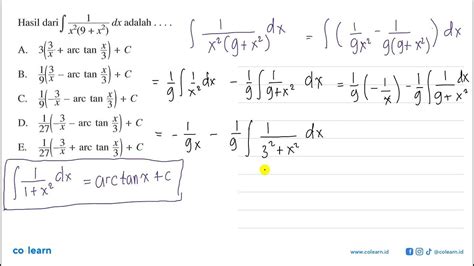 Hasil dari ∫ 1/(x²(9 + x²)) dx adalah . . . .
A. 3(3/x + arc tan x/3) + C
B. 1/9(3/x − arc tan x/3) + C
C. 1/9(−3/x − arc tan x/3) + C
D. 1/27(−3/x − arc tan x/3) + C
E. 1/27(−3/x + arc tan x/3) + C
∫ 1/(1+x²) dx = arc tan x + c
∫ 1/(x²(9+x²)) dx = ∫ (1/(9x²) − 1/(9(9+x²))) dx
= 1/9 ∫ 1/x² dx − 1/9 ∫ 1/(9+x²) dx = 1/9 (−1/x) − 1/9 ∫ 1/(9+x²) dx
= −1/(9x) − 1/9 ∫ 1/(3²+x²) dx
co learn
www.colearn.id
@colearn.id